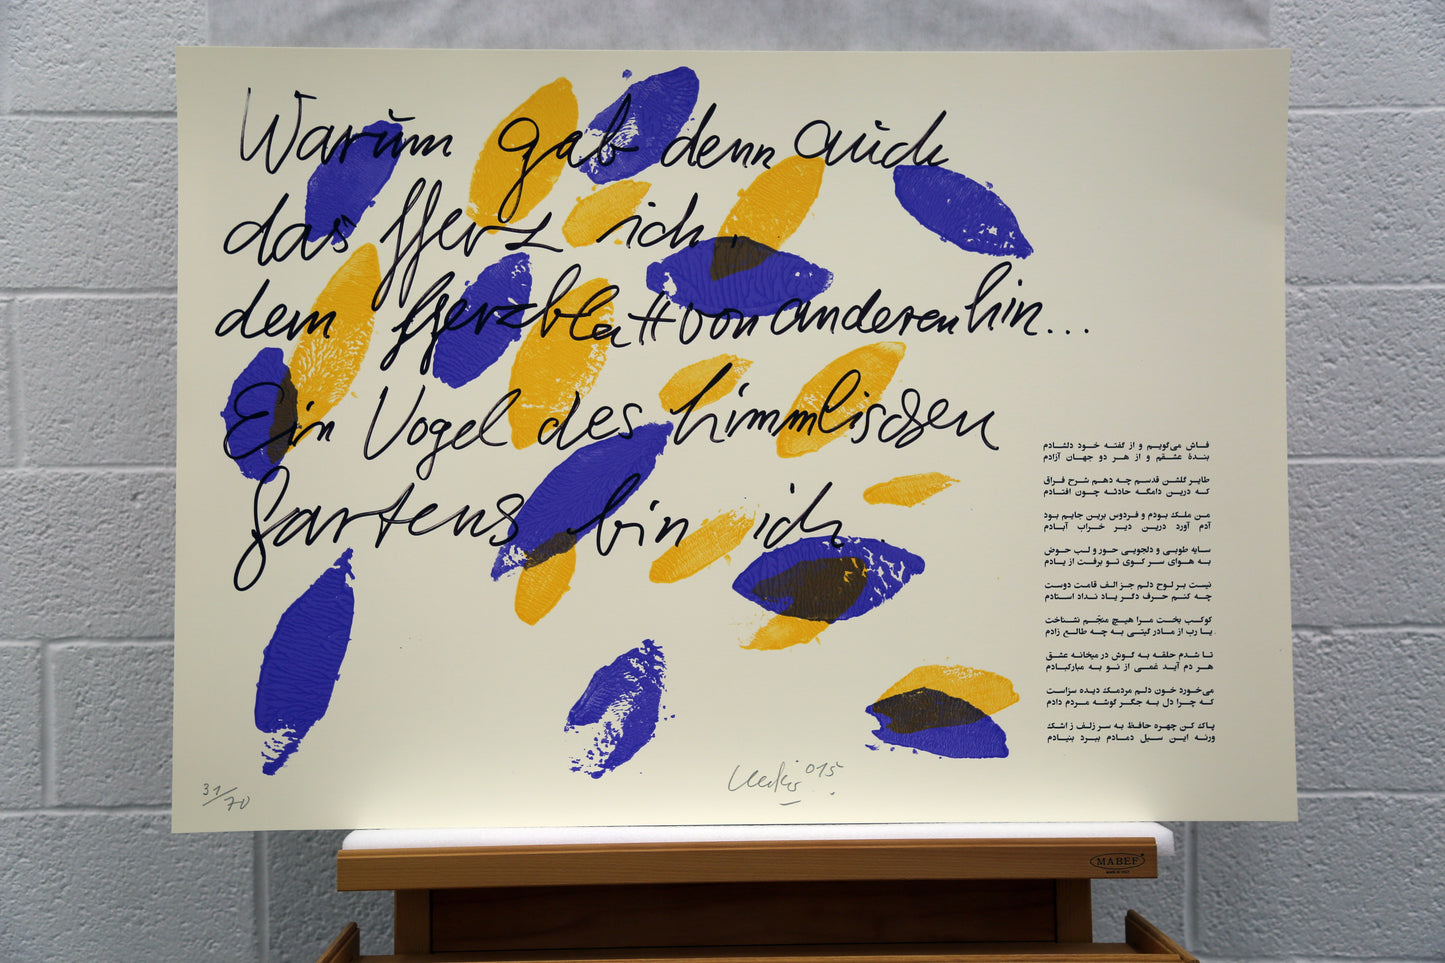 Warum gab denn auch
das Herz ich,
dem Herzblatt von anderen hin...
Ein Vogel des himmlischen
Gartens bin ich.
فاش می‌گویم و از گفته خود دلشادم
بندهٔ عشقم و از هر دو جهان آزادم
طایر گلشن قدسم چه دهم شرح فراق
که درین دامگه حادثه چون افتادم
من ملک بودم و فردوس برین جایم بود
آدم آورد درین دیر خراب آبادم
سایه طوبی و دلجویی حور و لب حوض
به هوای سر کوی تو برفت از یادم
نیست بر لوح دلم جز الف قامت دوست
چه کنم حرف دگر یاد نداد استادم
کوکب بخت مرا هیچ منجّم نشناخت
یا رب از مادر گیتی به چه طالع زادم
تا شدم حلقه به گوش در میخانه عشق
هر دم آید غمی از نو به مبارکبادم
می‌خورد خون دلم مردمک دیده سزاست
که چرا دل به جگر گوشه مردم دادم
پاک کن چهره حافظ به سر زلف ز اشک
ورنه این سیل دمادم ببرد بنیادم
31/70
015
MABEF